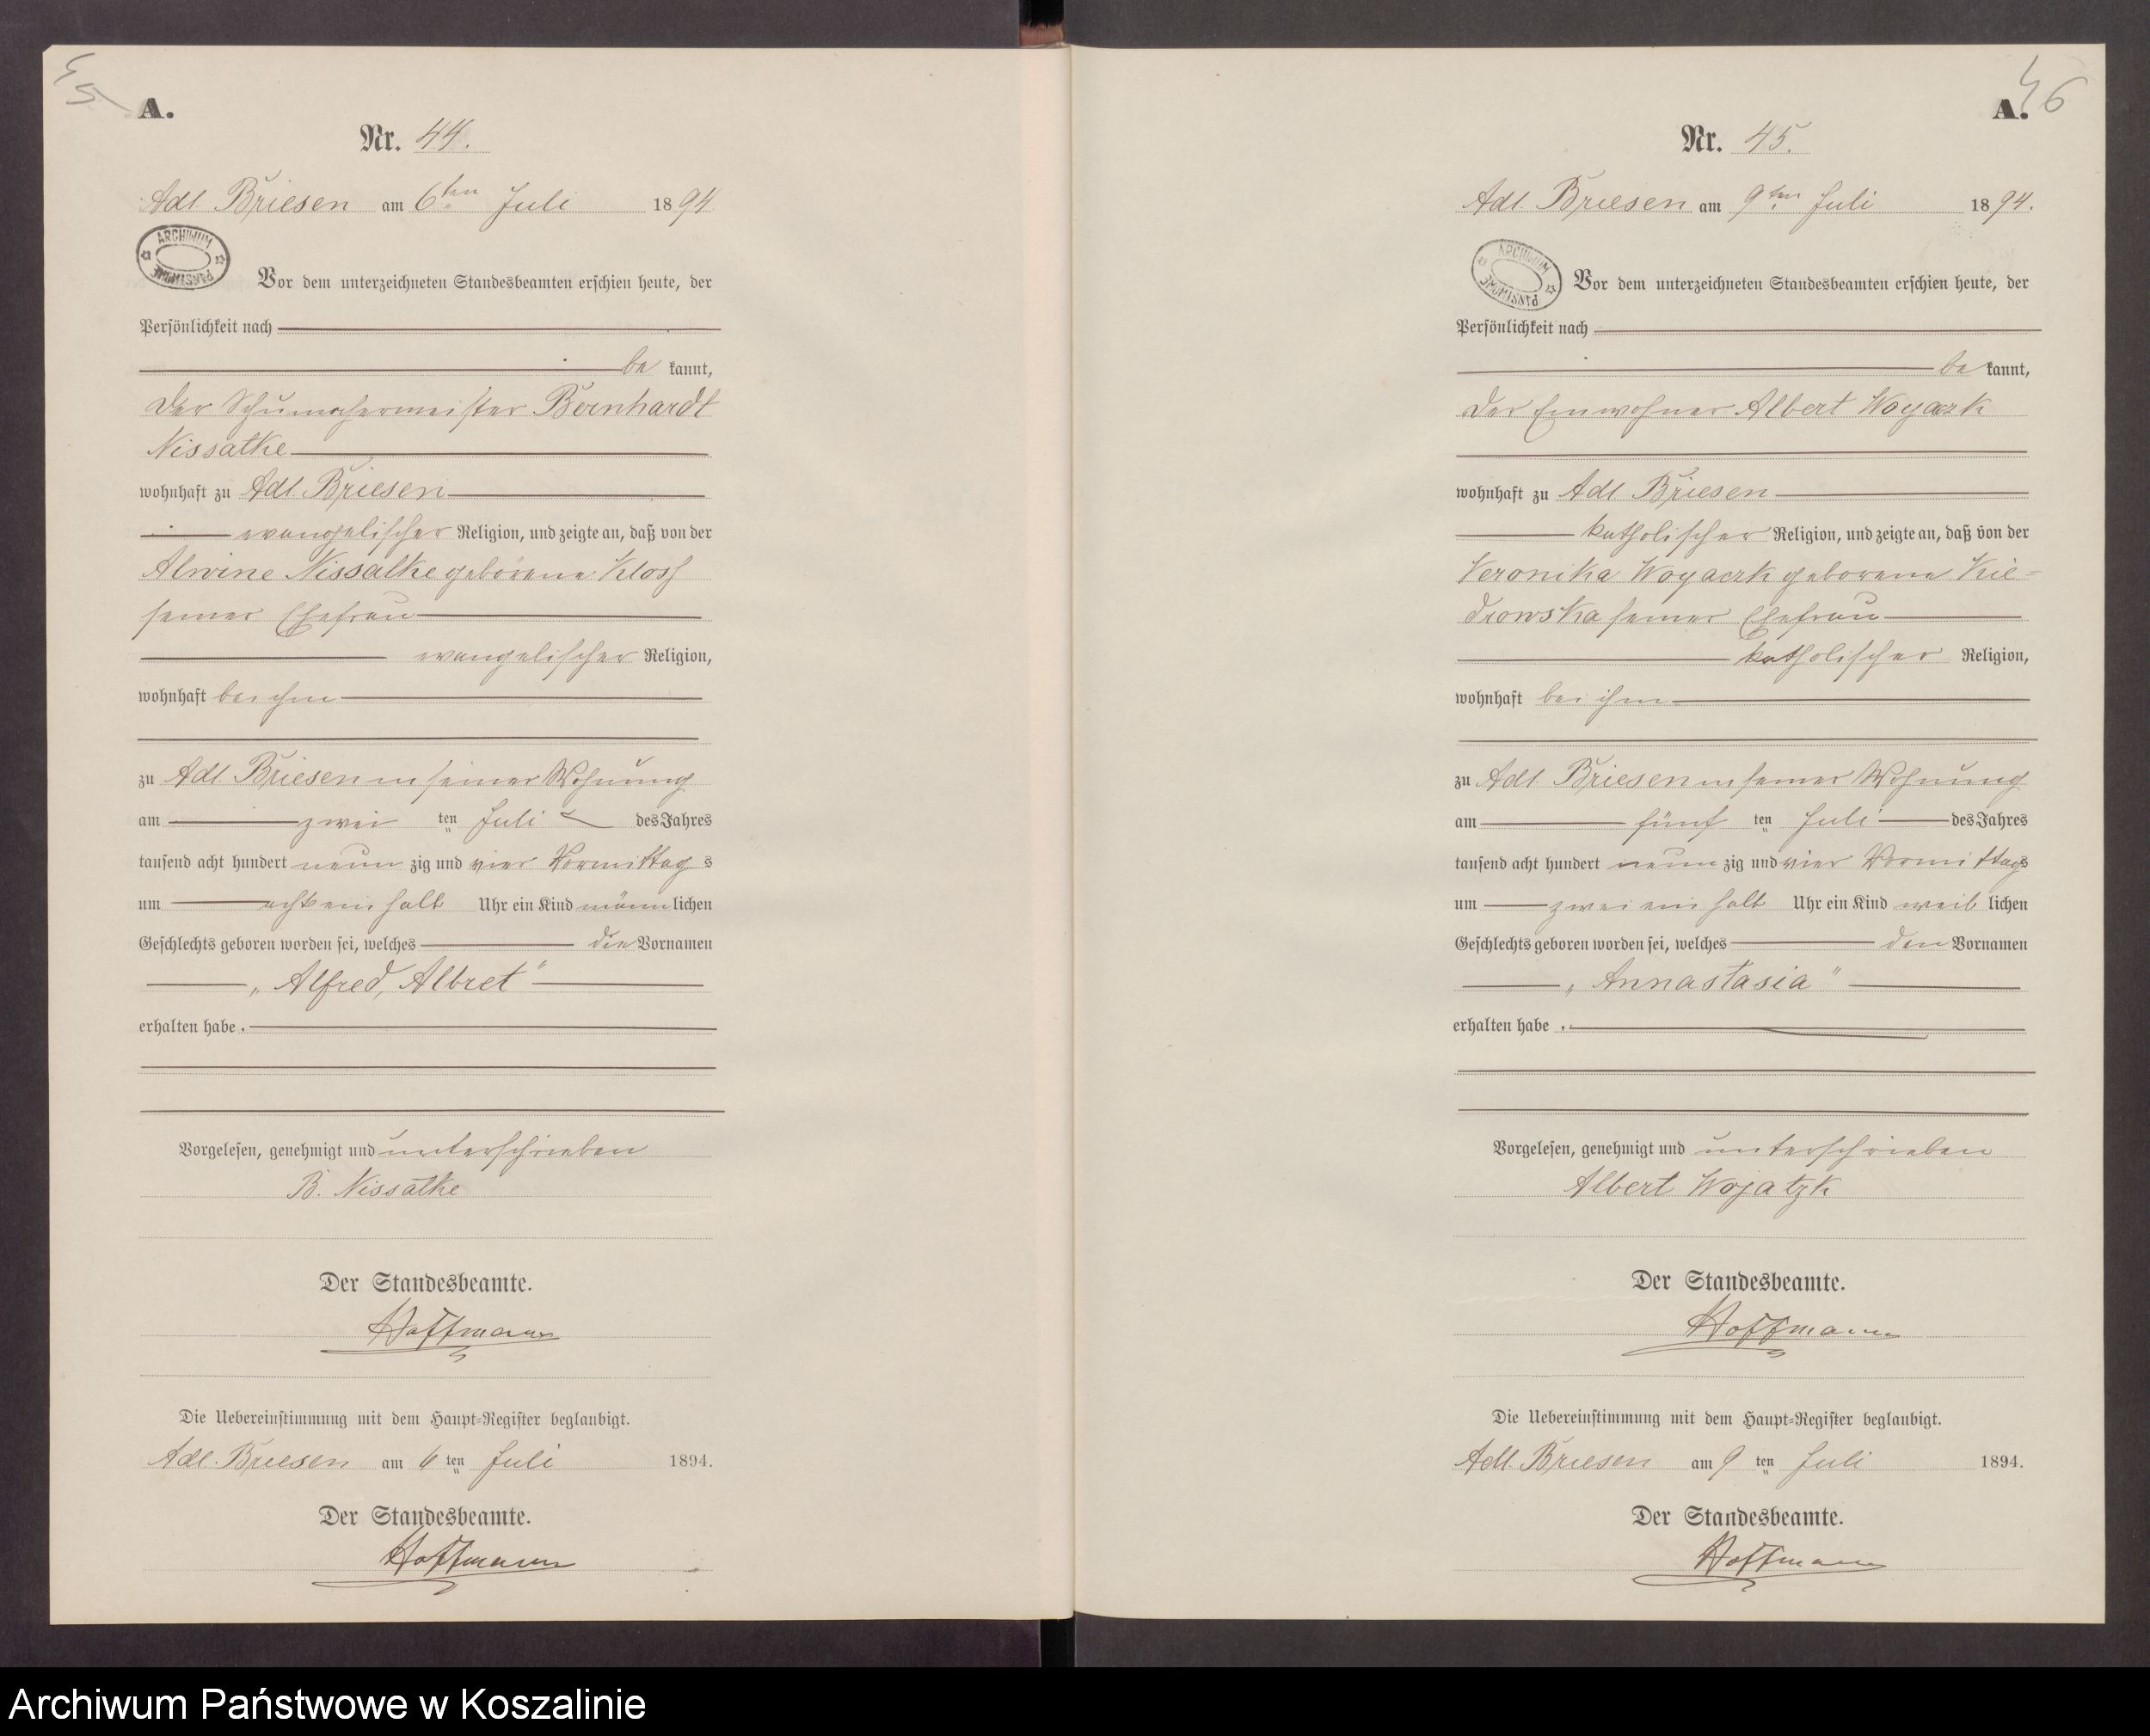 45
A.
Nr. 44.
Adl. Briesen am 6ten Juli 1894
ARCHIWUM PAŃSTWOWE
Vor dem unterzeichneten Standesbeamten erschien heute, der
Persönlichkeit nach
be kannt,
der Schumachermeister Bernhardt
Nissatke
wohnhaft zu Adl. Briesen
evangelischer Religion, und zeigte an, daß von der
Alwine Nissatke geborene Kloss
seiner Ehefrau
evangelischer Religion,
wohnhaft bei ihm
zu Adl. Briesen in seiner Wohnung
am zwei ten Juli des Jahres
tausend acht hundert neun zig und vier Vormittag s
um acht ein halb Uhr ein Kind männ lichen
Geschlechts geboren worden sei, welches die Vornamen
„Alfred, Albret"
erhalten habe.
Vorgelesen, genehmigt und unterschrieben
B. Nissatke
Der Standesbeamte.
Hoffmann
Die Uebereinstimmung mit dem Haupt-Register beglaubigt.
Adl. Briesen am 6 ten Juli 1894.
Der Standesbeamte.
Hoffmann
46
A.
Nr. 45.
Adl. Briesen am 9ten Juli 1894.
ARCHIWUM PAŃSTWOWE
Vor dem unterzeichneten Standesbeamten erschien heute, der
Persönlichkeit nach
be kannt,
der Einwohner Albert Woyaczk
wohnhaft zu Adl. Briesen
katholischer Religion, und zeigte an, daß von der
Veronika Woyaczk geborene Kie-
drowska seiner Ehefrau
katholischer Religion,
wohnhaft bei ihm
zu Adl. Briesen in seiner Wohnung
am fünf ten Juli des Jahres
tausend acht hundert neun zig und vier Vormittags
um zwei ein halb Uhr ein Kind weib lichen
Geschlechts geboren worden sei, welches den Vornamen
„Annastasia"
erhalten habe.
Vorgelesen, genehmigt und unterschrieben
Albert Wojatzk
Der Standesbeamte.
Hoffmann
Die Uebereinstimmung mit dem Haupt-Register beglaubigt.
Adl. Briesen am 9 ten Juli 1894.
Der Standesbeamte.
Hoffmann
Archiwum Państwowe w Koszalinie